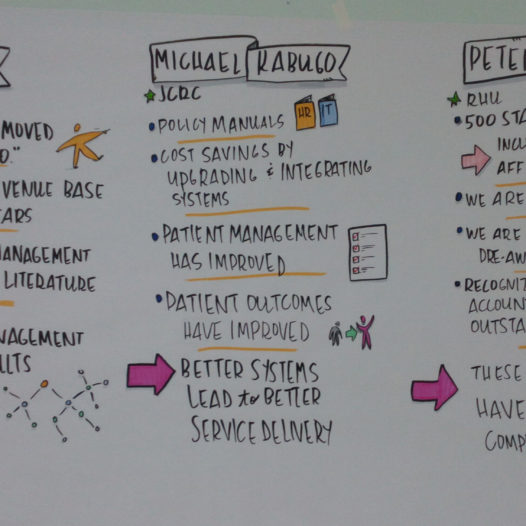 MOVED
VENUE BASE
MANAGEMENT
LITERATURE
MICHAEL KABUGO
JCRC
• POLICY MANUALS
HR
IT
• COST SAVINGS BY
UPGRADING & INTEGRATING
SYSTEMS
• PATIENT MANAGEMENT
HAS IMPROVED
• PATIENT OUTCOMES
HAVE IMPROVED
BETTER SYSTEMS
LEAD to BETTER
SERVICE DELIVERY
PETE
RHU
• 500 STA
INCL
AFF
• WE ARE
• WE ARE
PRE-AW
• RECOGNIT
ACCOUN
OUTSTA
THESE
HAVE
COMP